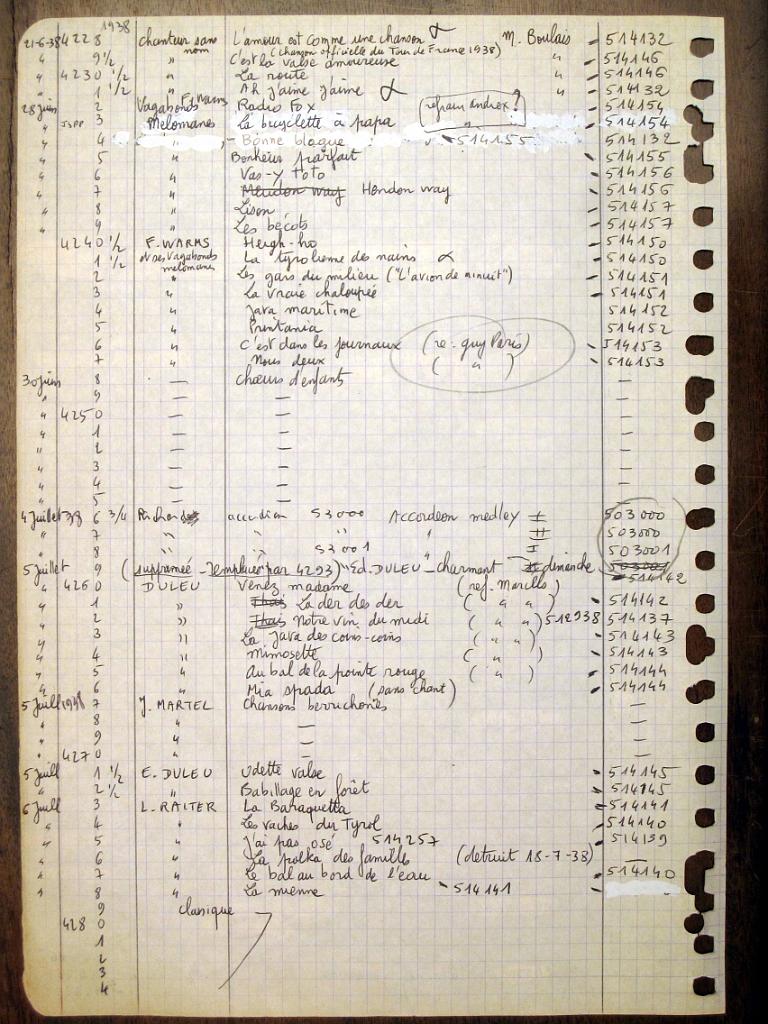 1938
21-6-38 4228 chanteur sans nom L'amour est comme une chanson α M. Boulais - 514132
(chanson officielle du Tour de France 1938)
" 9 1/2 " c'est la valse amoureuse " - 514146
" 4230 1/2 " La route " - 514146
" 1 1/2 " Ah j'aime j'aime α " - 514132
28 juin 2 Vagabonds F. Warms Radio Fox (refrain Andrex ?) - 514154
" JSPP 3 Melomanes La bicyclette à papa " - 514154
" 4 " - Bonne blague - 514155 514132
" 5 " Bonheur parfait - 514155
" 6 " Vas-y toto - 514156
" 7 " Hendon way - 514156
" 8 " Lison - 514157
" 9 " Les bécots - 514157
4240 1/2 F. WARMS Heigh-ho - 514150
1 1/2 et ses Vagabonds mélomanes La tyrolienne des nains α - 514150
2 " Les gars du milieu ("L'avion de minuit") - 514151
3 " La vraie chaloupée - 514151
4 " Java maritime - 514152
5 " Printania - 514152
6 " C'est dans les journaux (re. guy Paris) - 514153
7 " Nous deux ( " ) - 514153
30 juin 8 — chœurs d'enfants —
" 9 — — —
" 4250 — — —
" 1 — — —
" 2 — — —
" 3 — — —
" 4 — — —
" 5 — — —
4 Juillet 38 6 3/4 Richard accordion 53000 Accordeon medley I 503000
" 7 " " " " II 503000
" 8 " " 53001 " I 503001
5 juillet 9 (supprimée - remplacée par 4293) "Ed. DULEU" - charmant dimanche 503001
" 4260 DULEU Venez madame (ref. Marcello) - 514142
" 1 " La der des der ( " " ) - 514142
" 2 " Notre vin du midi ( " " ) 512938 514137
" 3 " La java des coins-coins ( " " ) - 514143
" 4 " Mimosette ( " ) - 514143
" 5 " Au bal de la pointe rouge ( " ) - 514144
" 6 " Mia spada (sans chant) - 514144
5 Juill 1938 7 J. MARTEL Chansons berrichonnes —
" 8 " — —
" 9 " — —
" 4270 " — —
5 Juill 1 1/2 E. DULEU Odette valse - 514145
" 2 1/2 " Babillage en forêt - 514145
6 Juill 3 L. RAITER La Baraquetta - 514141
" 4 " Les vaches du Tyrol - 514140
" 5 " J'ai pas osé 514257 514139
" 6 " La polka des familles (detruit 18-7-38) —
" 7 " Le bal au bord de l'eau - 514140
" 8 " La mienne - 514141
9 classique
4280
1
2
3
4